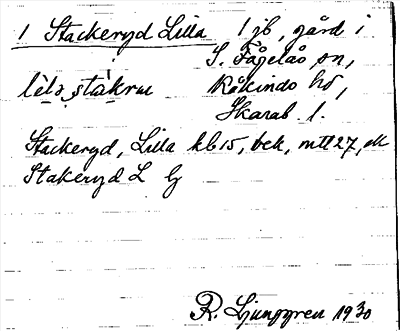 1 Stackeryd Lilla 1 jb, gård i
S. Fågelås sn,
lìlɔ stàkru Kåkinds hd,
Skarab. l.
Stackeryd, Lilla kb 15, bek, mtl 27, ek
Stakeryd L Gj
R. Ljunggren 1930